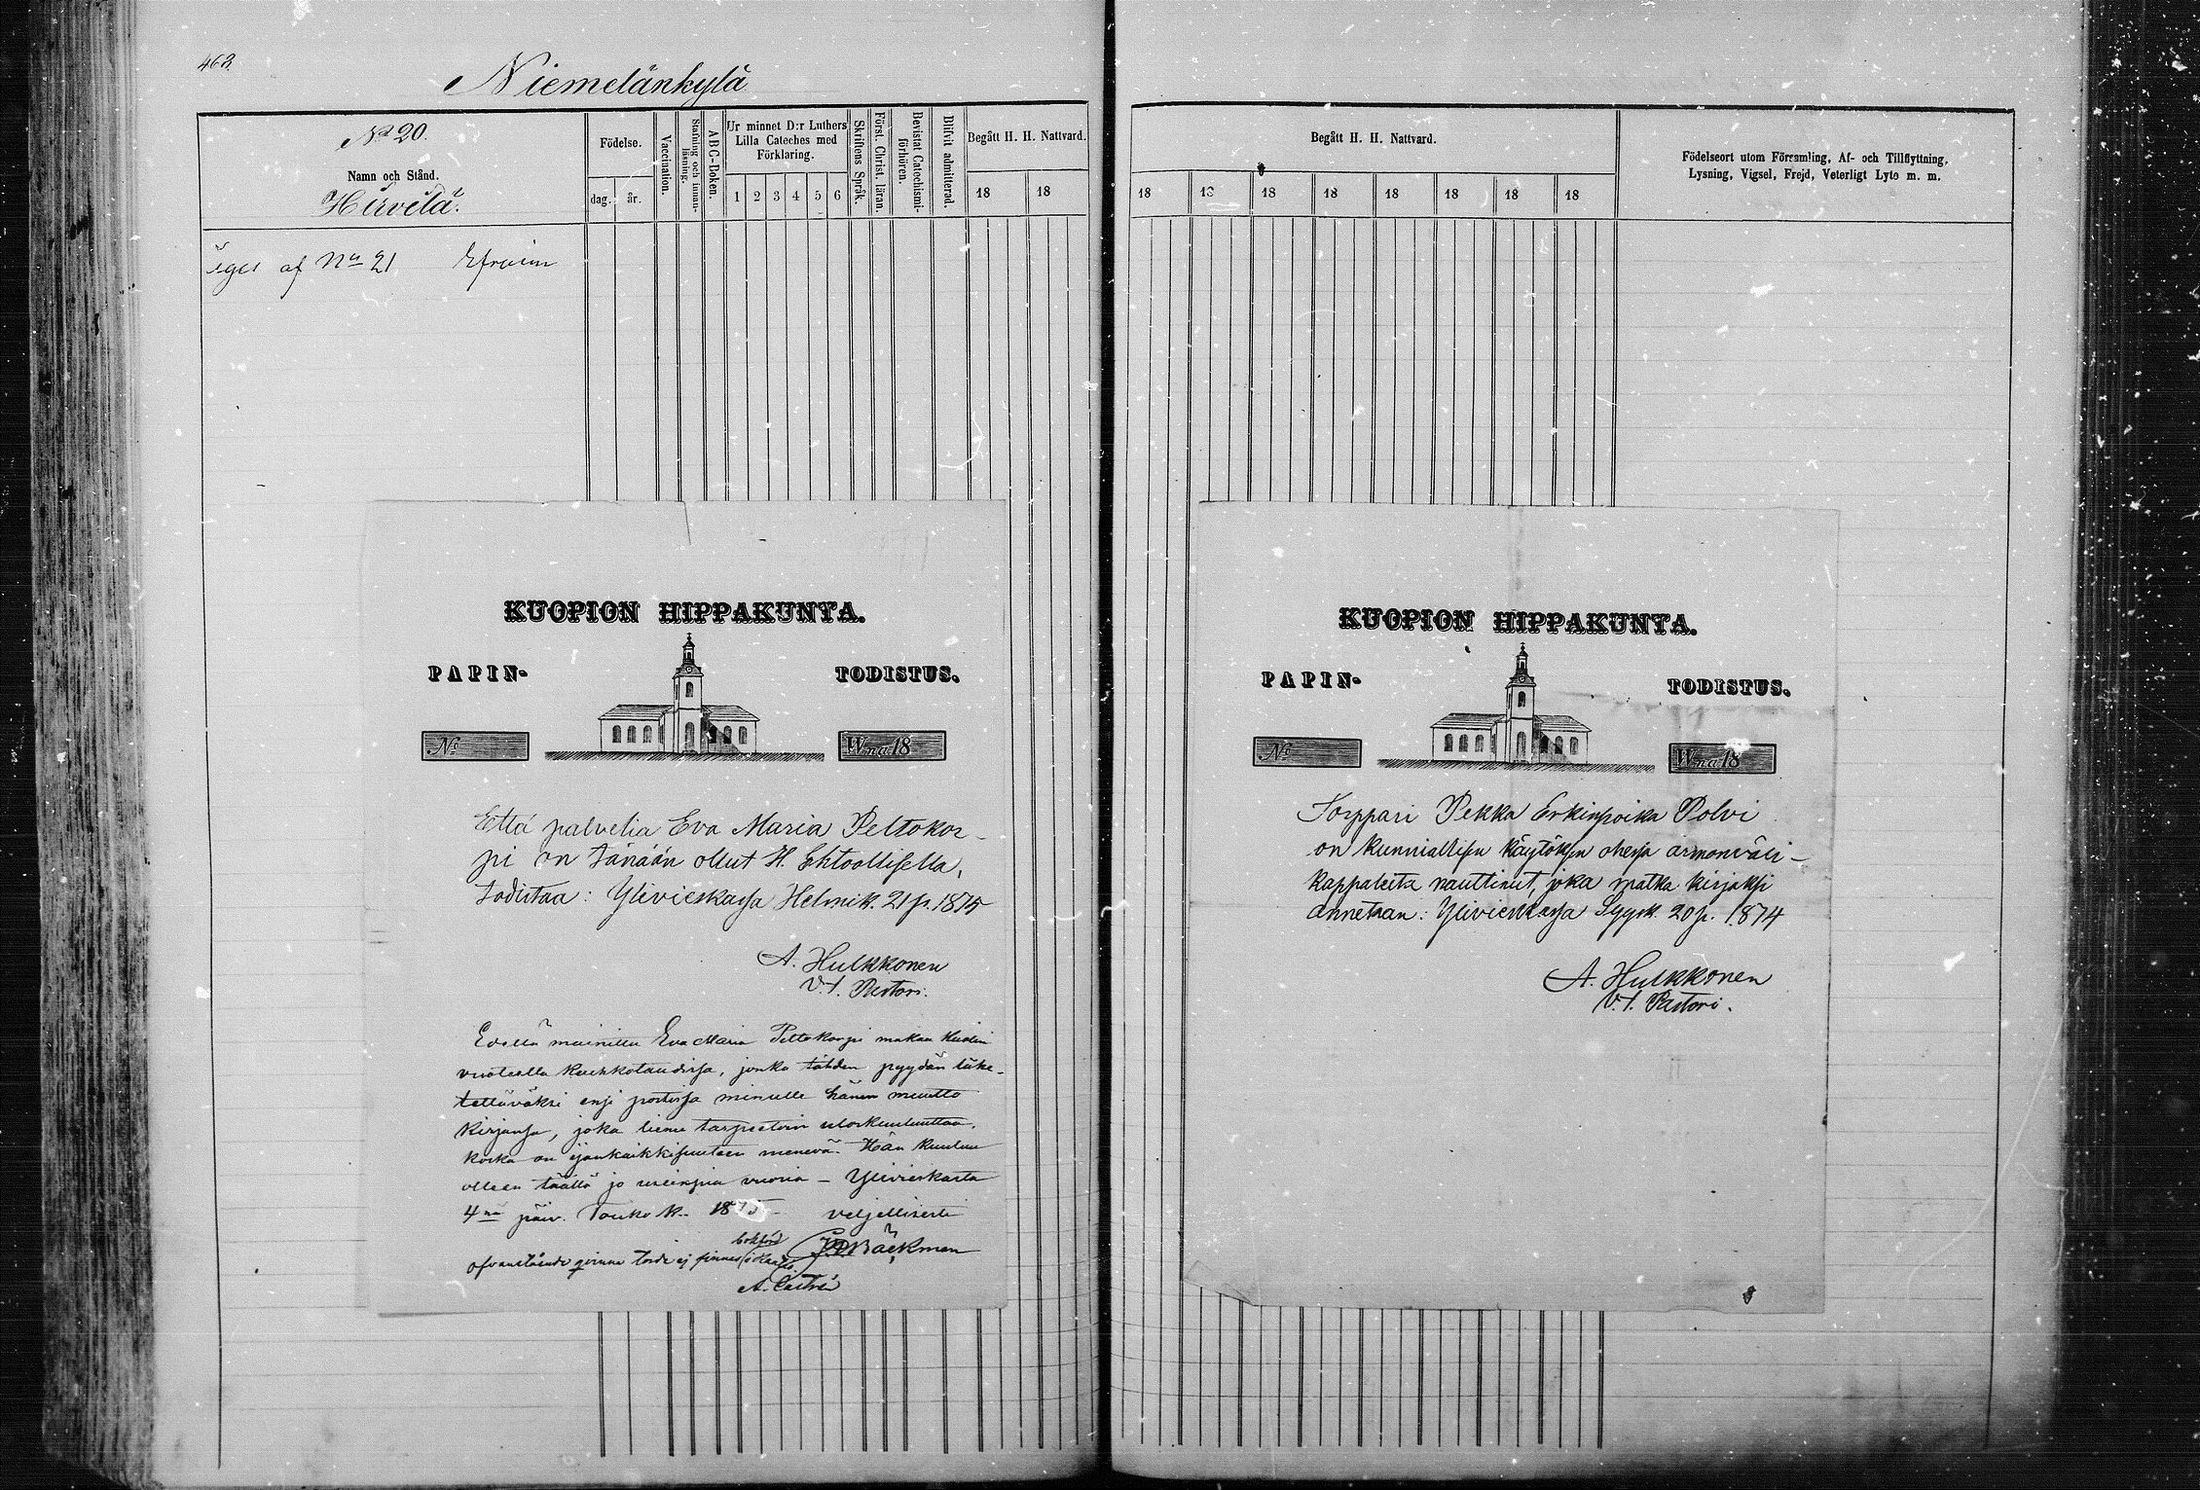 463.
Niemelänkylä
No 20.
Namn och Stånd.
Hirvelä.
Födelse.
dag. år.
Vaccination.
Stafning och innan-
läsning.
ABC-Boken.
Ur minnet D:r Luthers
Lilla Cateches med
Förklaring.
1 2 3 4 5 6
Skriftens Språk.
Först. Christ. läran.
Bevistat Catechismi-
förhören.
Blifvit admitterad.
Begått H. H. Nattvard.
18 18
äges af No 21 Efraim
KUOPION HIPPAKUNTA.
PAPIN- TODISTUS.
No W:na 18
Että palvelia Eva Maria Peltokor-
pi on tänään ollut H. Ehtoollisella,
todistaa: Ylivieskassa Helmik. 21 p. 1875
A. Hulkkonen
V.t. Pastori.
Edellä mainittu Eva Maria Peltokorpi makaa kuolin
vuoteella keuhkotaudissa, jonka tähden pyydän lähe-
tettäväksi ensi postissa minulle hänen muutto
kirjansa, joka lienee tarpeetoin uloskuuluuttaa,
koska on ijankaikkisuuteen menevä. Hän kuuluu
olleen täällä jo useinpia vuosia – Ylivieskasta
4nä päiv. Touko k. 1875 veljellisesti
Bäckman
ofvanstående qvinna torde ej finnas
A. Castrén
Begått H. H. Nattvard.
18 18 18 18 18 18 18 18
Födelseort utom Församling, Af- och Tillflyttning,
Lysning, Vigsel, Frejd, Veterligt Lyte m. m.
KUOPION HIPPAKUNTA.
PAPIN- TODISTUS.
No W:na 18
Torppari Pekka Erkinpoika Polvi
on kunniallisen käytöksen ohessa armonväli-
kappaleita nauttinut, joka matka kirjaksi
annetaan: Ylivieskassa Syysk. 20 p. 1874
A. Hulkkonen
V.t. Pastori.